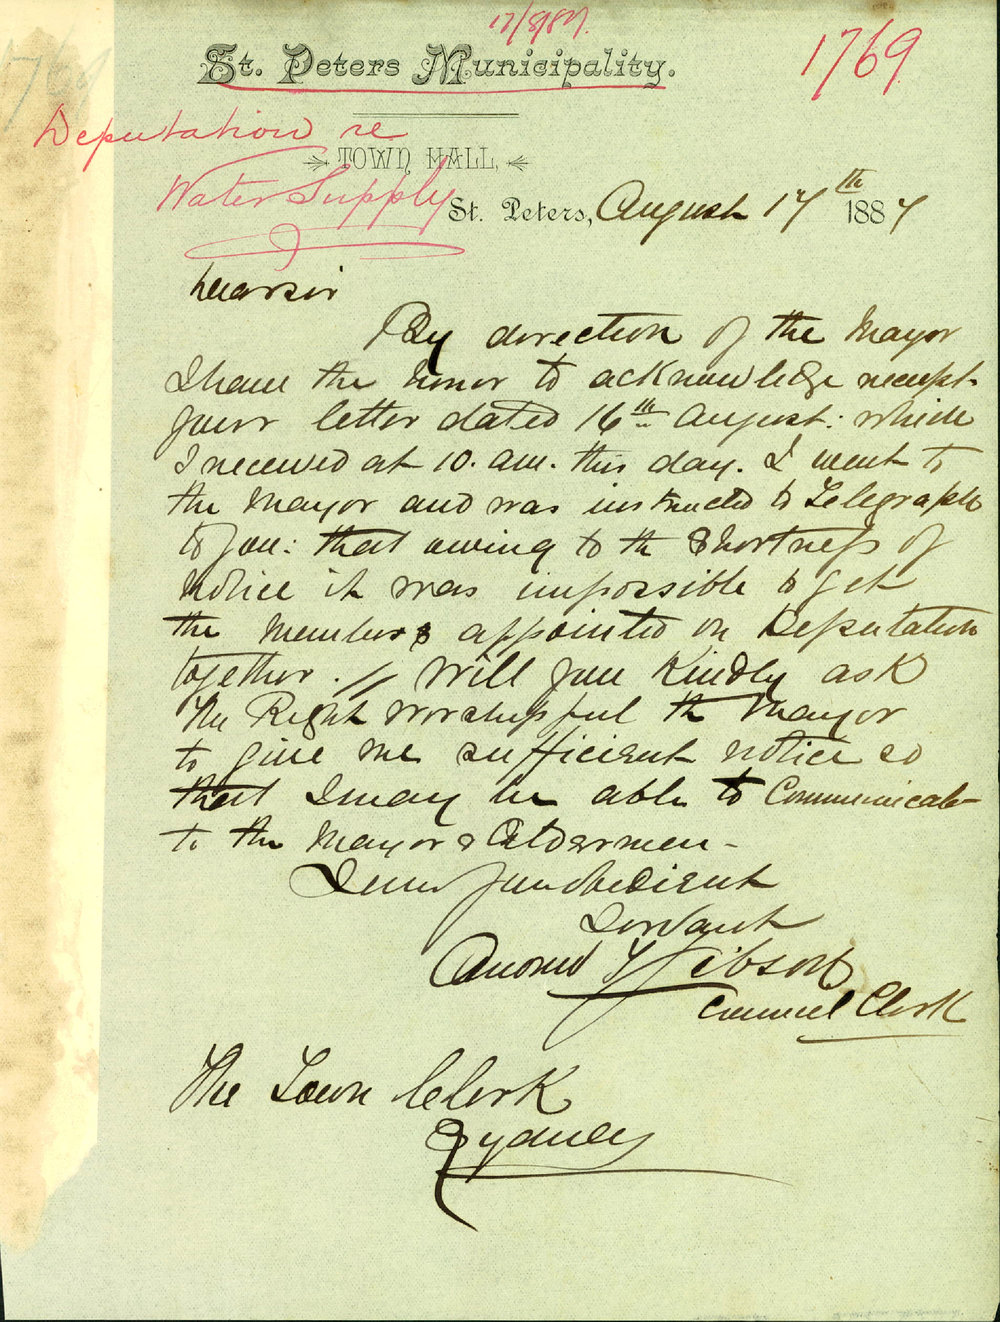 17/8/87.
1769
St. Peters Municipality.
Deputation re
Water Supply
TOWN HALL,
St. Peters, August 17th 1887
Dear Sir
By direction of the Mayor
I have the honor to acknowledge receipt
your letter dated 16th August: which
I received at 10. am. this day. I went to
the Mayor and was instructed to Telegraph
to you: that owing to the Shortness of
Notice it was impossible to get
the members appointed on Deputation
together. // Will you Kindly ask
The Right Worshipful the Mayor
to give me sufficient notice so
that I may be able to Communicate
to the Mayor & Aldermen -
I am Your obedient
Servant
Andrew Y Gibson
Council Clerk
The Town Clerk
Sydney